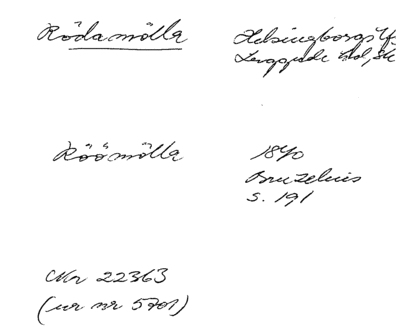 Rödamölla
Helsingborgs lfs
Luggude hd, Sk
Röömölla
1840
Bruzelius
s. 191
Nr 22363
(ur nr 5701)